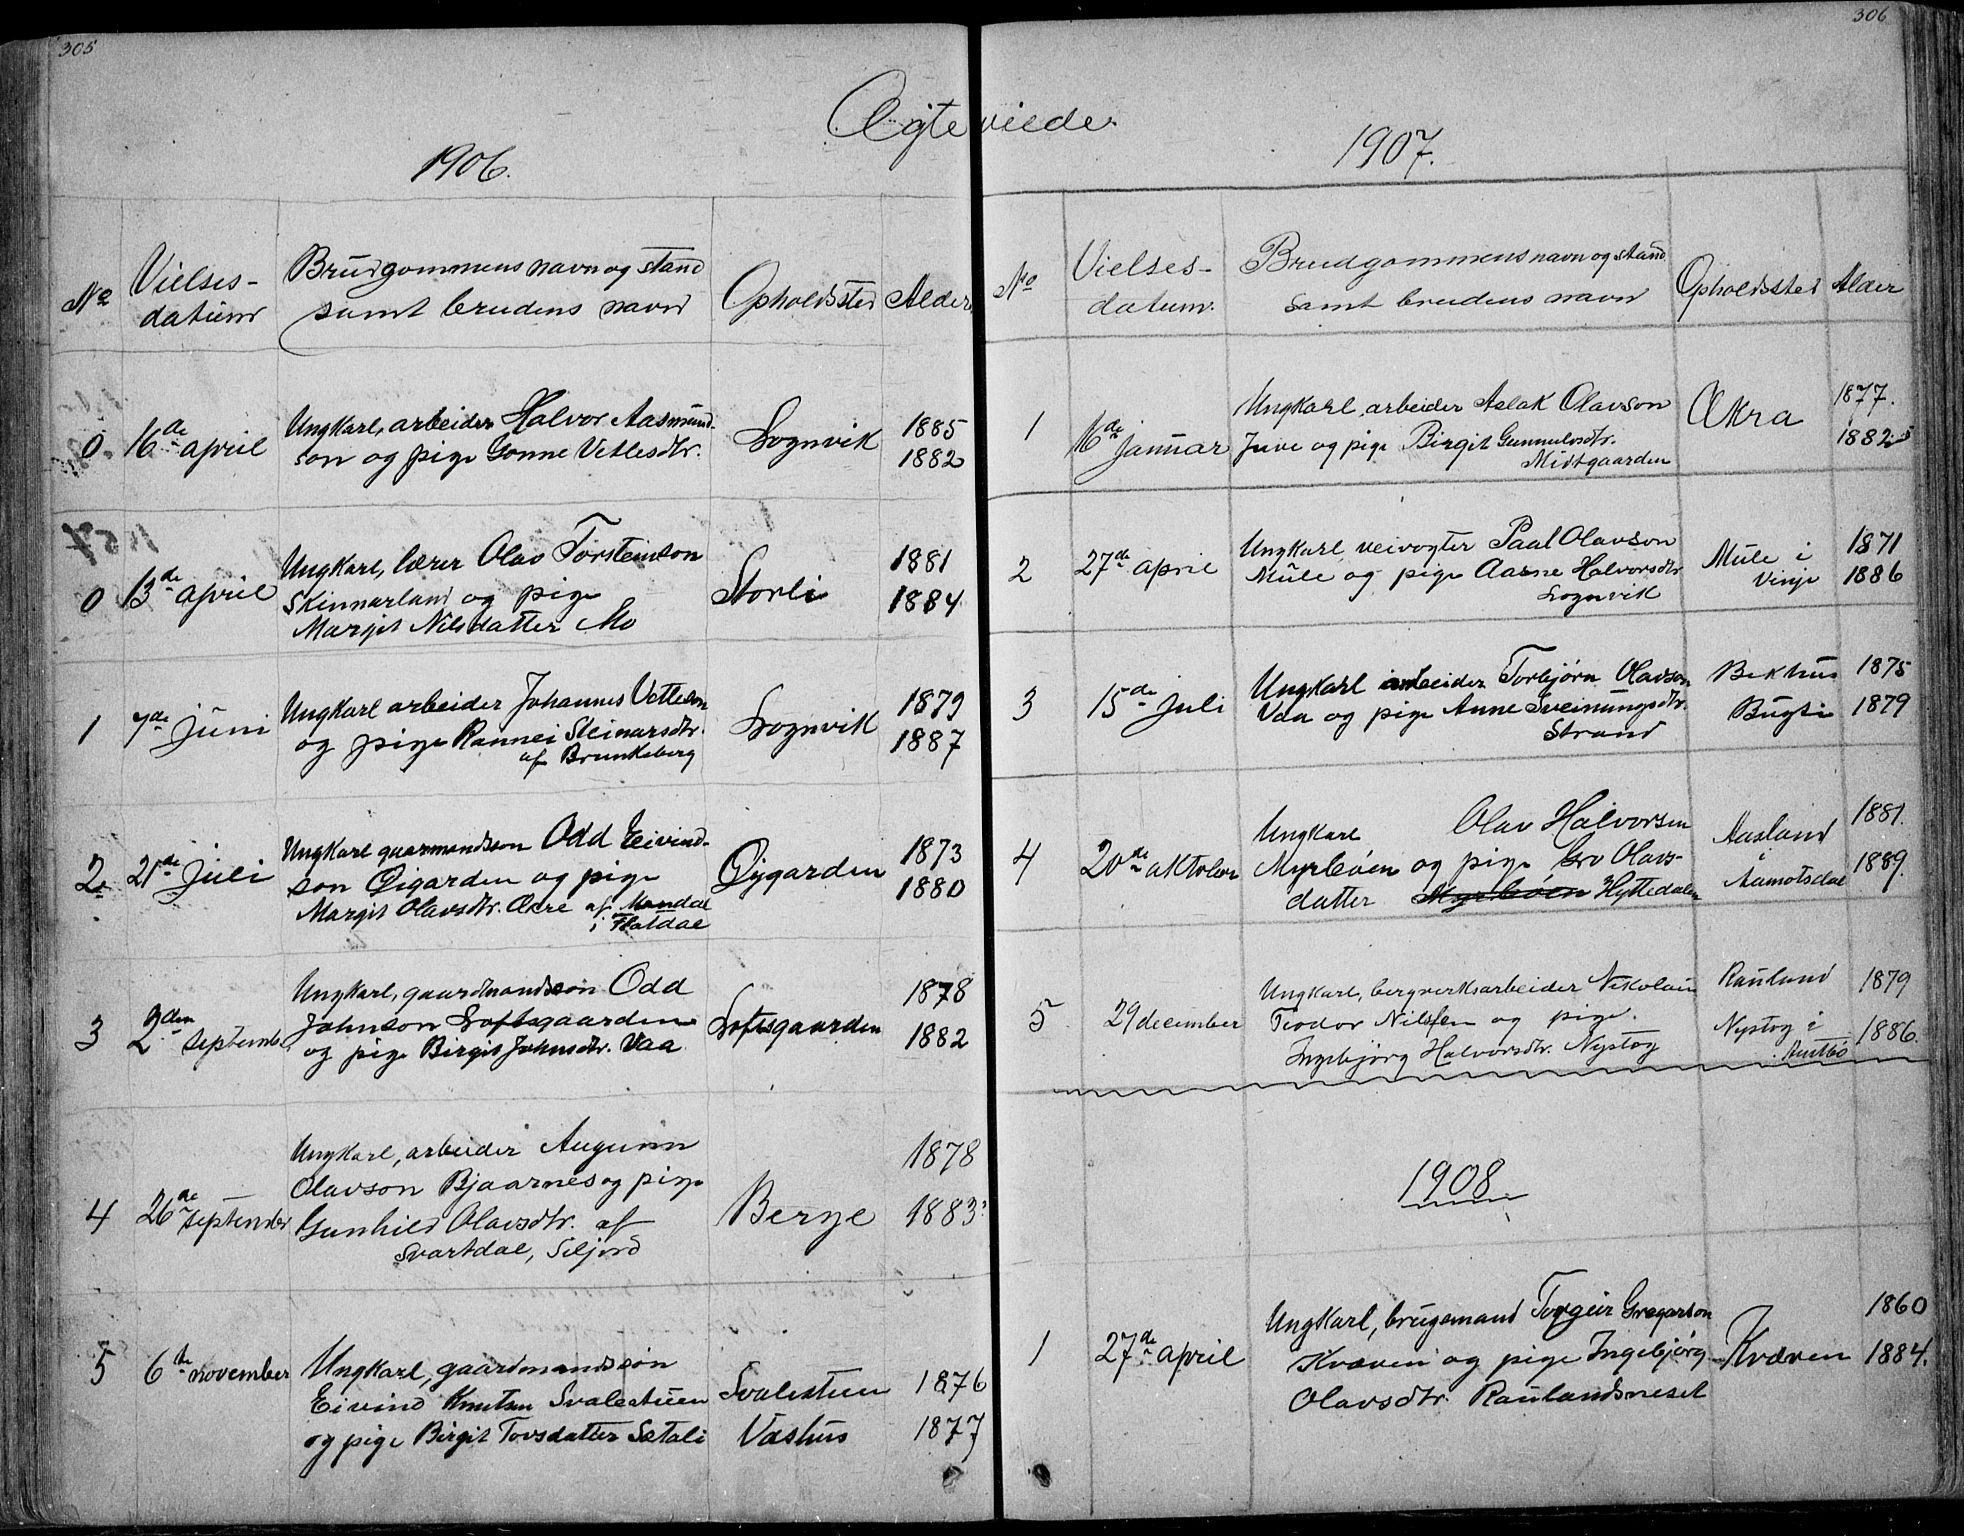 305
306
Ægteviede.
1906.
No
Vielses-
datum
Brudgommens navn og stand
samt brudens navn
Opholdssted
Alder
0
16de april
Ungkarl, arbeider Halvor Aasmund-
son og pige Gonne Vetlesdtr.
Lognvik
1885
1882
0
13de april
Ungkarl, lærer Olav Torsteinson
Skinnarland og pige
Margit Nilsdatter Mo
Storli
1881
1884
1
7de juni
Ungkarl arbeider Johannes Vetleson
og pige Rannei Steinarsdtr.
af Brunkeberg
Lognvik
1879
1887
2
21de juli
Ungkarl gaarmandsson Odd Eivind-
son Øigarden og pige
Margit Olavsdtr. Økre af Mandal
i Flatdal
Øygarden
1873
1880
3
2den september
Ungkarl, gaardmandsson Odd
Johnson Loftsgaarden
og pige Birgit Johnsdtr. Vaa
Loftsgaarden
1878
1882
4
26de september
Ungkarl, arbeider Augunn
Olavson Bjaarnes og pige
Gunhild Olavsdtr. af
Svartdal, Siljord
Berge
1878
1883
5
6te november
Ungkarl, gaardmandssøn
Eivind Knutsen Svalestuen
og pige Birgit Tovsdatter Sætali
Svalestuen
Vashus
1876
1877
1907.
No
Vielses-
datum.
Brudgommens navn og stand
samt brudens navn
Opholdssted
Alder
1
16de januar
Ungkarl, arbeider Aslak Olavson
Juve og pige Birgit Gunnulvsdtr.
Midtgaarden
Økra
1877.
1882
2
27de april
Ungkarl, veivogter Paal Olavson
Mule og pige Aasne Halvorsdtr
Lognvik
Mule i
Vinje
1871
1886
3
15de juli
Ungkarl arbeider Torbjørn Olavson
Vaa og pige Anne Sveinungsdtr.
Strand
Bekhus
Bugti
1875
1879
4
20de oktober
Ungkarl Olav Halvorsen
Myrbøen og pige Gro Olavs-
datter Myrbøen Hyttedalen
Aasland
i
Aamotsdal
1881.
1889.
5
29 december
Ungkarl, bergverksarbeider Nikolai
Teodor Nilssen og pige
Ingebjørg Halvorsdtr. Nystog
Rauland
Nystog i
Austbø
1879
1886.
1908
1
27de april
Ungkarl, brugsmand Torgeir Gregarson
Kvæven og pige Ingebjørg
Olavsdtr. Raulandsneset
Kvæven
1860
1884.